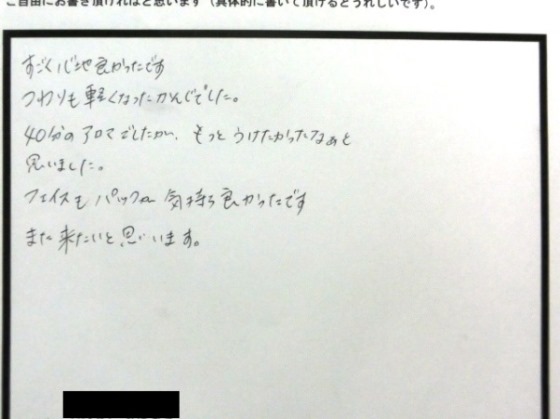 ご自由にお書き頂ければと思います（具体的に書いて頂けるとうれしいです）。
すごく心地良かったです
つわりも軽くなったかんじでした。
40分のアロマでしたが、もっとうけたかったなぁと
思いました。
フェイスもパックが気持ち良かったです
また来たいと思います。